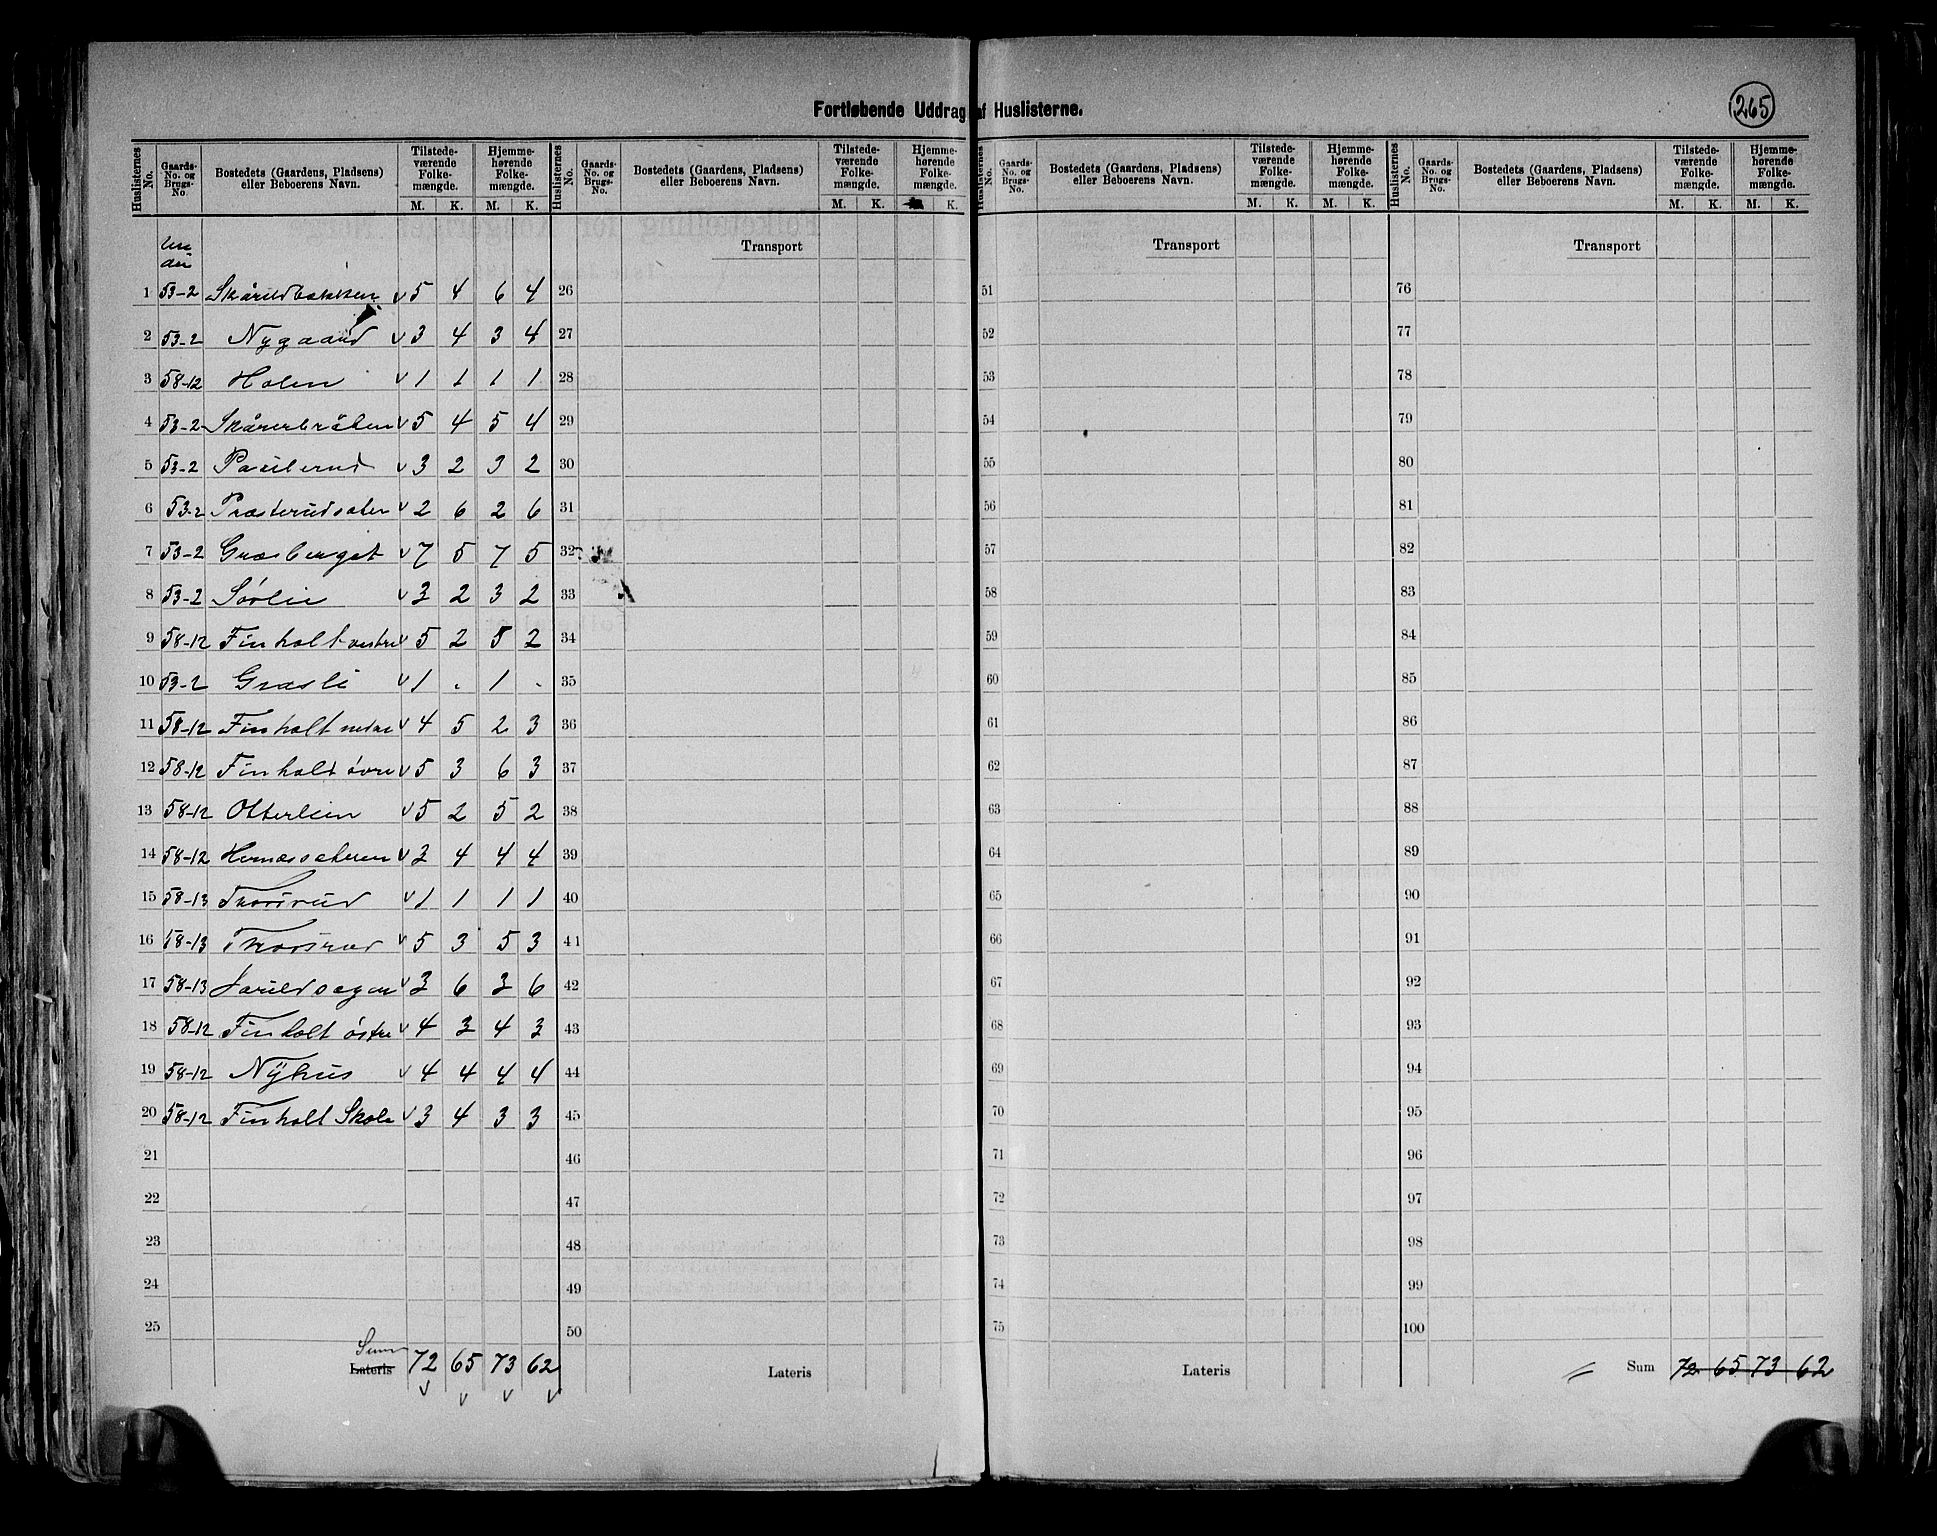 Fortløbende Uddrag af Huslisterne.
265
Huslisternes No. Gaards-No. og Brugs-No. Bostedets (Gaardens, Pladsens) eller Beboerens Navn. Tilstedeværende Folkemængde. M. K. Hjemmehørende Folkemængde. M. K.
Huslisternes No. Gaards-No. og Brugs-No. Bostedets (Gaardens, Pladsens) eller Beboerens Navn. Tilstedeværende Folkemængde. M. K. Hjemmehørende Folkemængde. K.
Huslisternes No. Gaards-No. og Brugs-No. Bostedets (Gaardens, Pladsens) eller Beboerens Navn. Tilstedeværende Folkemængde. M. K. Hjemmehørende Folkemængde. M. K.
Huslisternes No. Gaards-No. og Brugs-No. Bostedets (Gaardens, Pladsens) eller Beboerens Navn. Tilstedeværende Folkemængde. M. K. Hjemmehørende Folkemængde. M. K.
Transport Transport Transport
1 53-2 Skårildbakken v 5 4 6 4 26 51 76
2 53-2 Nygaard v 3 4 3 4 27 52 77
3 58-12 Holen v 1 1 1 1 28 53 78
4 53-2 Skårerbråten v 5 4 5 4 29 54 79
5 53-2 Paulerud v 3 2 3 2 30 55 80
6 53-2 Præsterudsæter v 2 6 2 6 31 56 81
7 53-2 Græsberget v 7 5 7 5 32 57 82
8 53-2 Sørlie v 3 2 3 2 33 58 83
9 58-12 Finholt vestre v 5 2 5 2 34 59 84
10 53-2 Græsli v 1 . 1 . 35 60 85
11 58-12 Finholt nedre v 4 5 2 3 36 61 86
12 58-12 Finholt övre v 5 3 6 3 37 62 87
13 58-12 Otterlein v 5 2 5 2 38 63 88
14 58-12 Hernæssæteren v 3 4 4 4 39 64 89
15 58-13 Thorsrud v 1 1 1 1 40 65 90
16 58-13 Thorsrud v 5 3 5 3 41 66 91
17 58-13 Jarildsagen v 3 6 3 6 42 67 92
18 58-12 Finholt östre v 4 3 4 3 43 68 93
19 58-12 Nÿhus v 4 4 4 4 44 69 94
20 58-12 Finholt Skole v 3 4 3 3 45 70 95
21 46 71 96
22 47 72 97
23 48 73 98
24 49 74 99
25 50 75 100
Sum
Lateris 72 65 73 62 Lateris Lateris Sum 72 65 73 62
v v v v